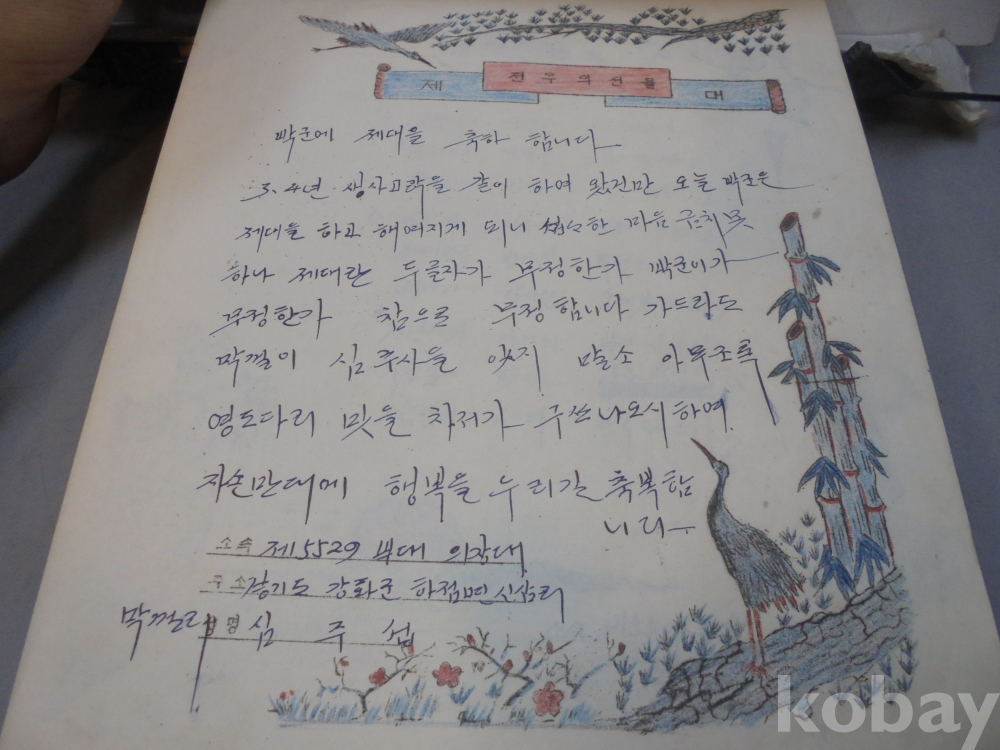 제 전우의선물 대
박군에 제대을 축하 합니다
3.4년 생사고락을 같이 하여 왔건만 오늘 박군은
제대을 하고 해여지게 되니 한 마음 금치못
하나 제대란 두글자가 무정한가 박군이가
무정한가 참으로 무정 합니다 가드라도
막껄이 심주사을 잊지 말소 아무조록
영도다리 밋을 차저가
자손만대에 행복을 누리길 축복합
니다
소속 제5529 부대 의장대
주소 경기도 강화군 하점면 신삼리
막껄리 성명 심 주 섭
kobay